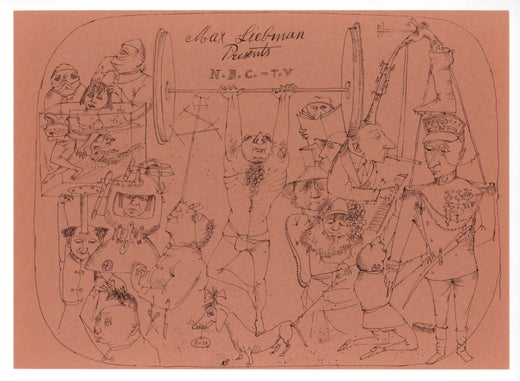 Max Liebman
Presents
N.B.C.-T.V